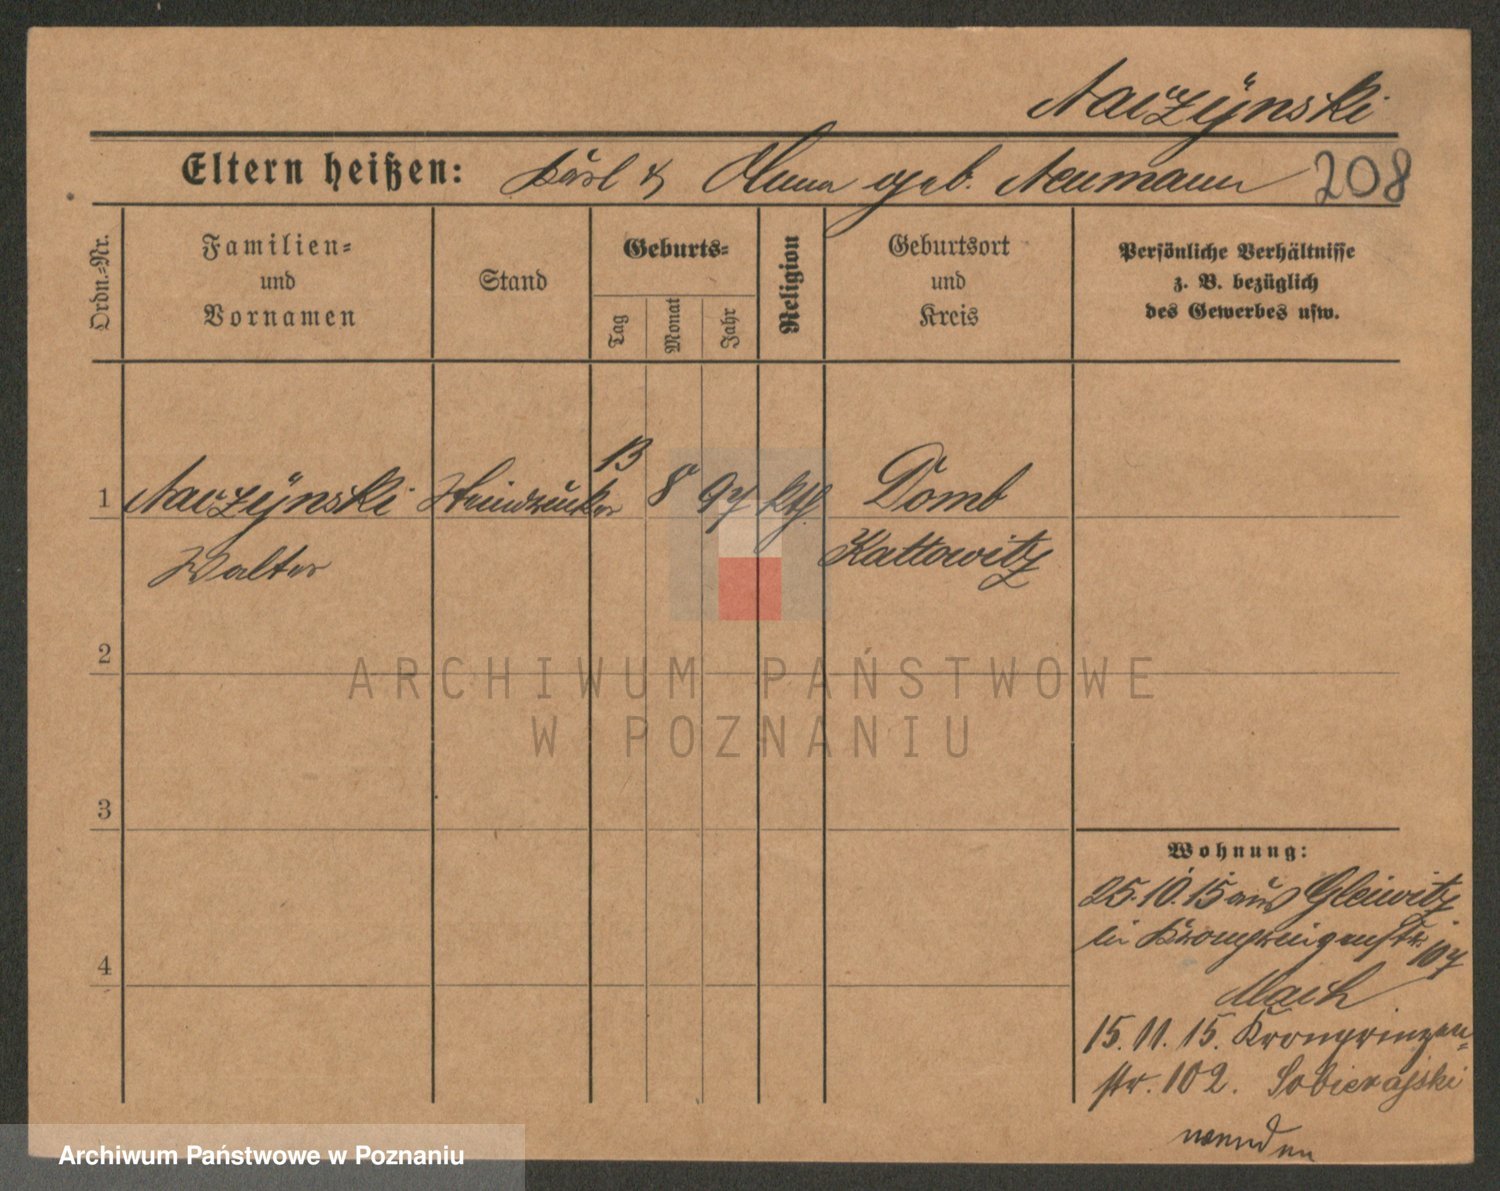 Naczÿnski
Eltern heißen: Karl & Anna geb. Neumann 208
Ordn.-Nr.
Familien-
und
Vornamen
Stand
Geburts-
Tag
Monat
Jahr
Religion
Geburtsort
und
Kreis
Persönliche Verhältnisse
z. B. bezüglich
des Gewerbes usw.
1 Naczÿnski Steindrucker 13 8 97 kth Domb
Walter Kattowitz
2
3
4
Wohnung:
25.10.15 aus Gleiwitz
bei Kronprinzenstr. 107
Mach
15.11.15. Kronprinzen-
str. 102. Sobierajski
wenden
ARCHIWUM PAŃSTWOWE
W POZNANIU
Archiwum Państwowe w Poznaniu